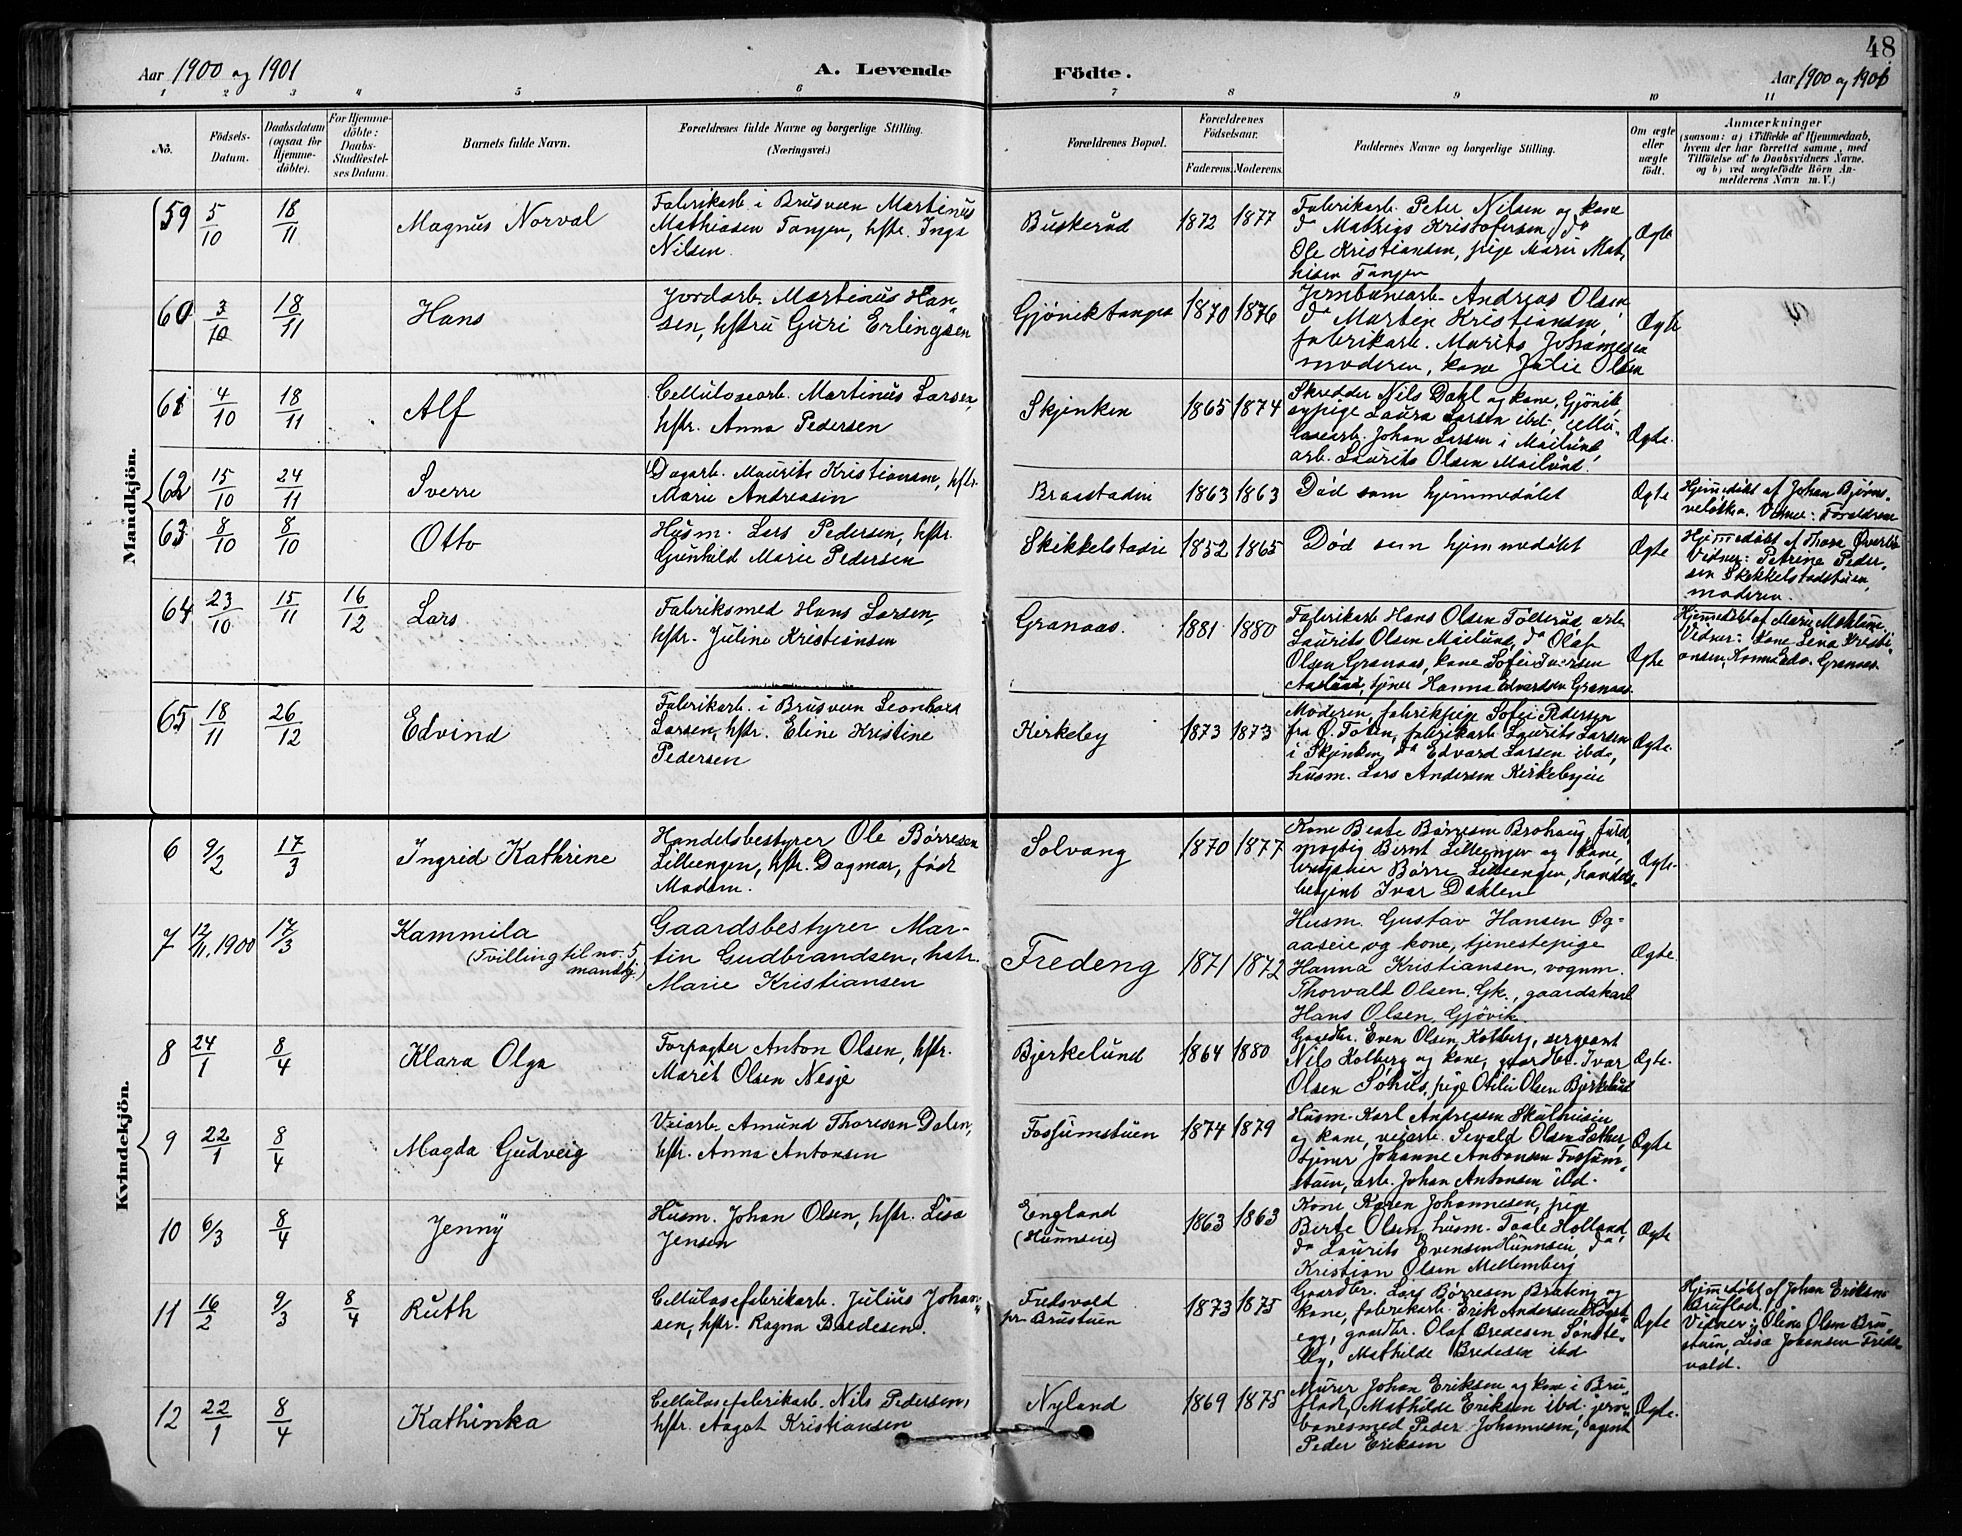 48
Aar 1900 og 1901
A. Levende Födte.
Aar 1900 og 1901
1 2 3 4 5 6 7 8 9 10 11
Nö.
Födsels-
Datum.
Daabsdatum
(ogsaa för
Hjemme-
döbte).
For Hjemme-
döbte:
Daabs-
Stadfæstel-
ses Datum.
Barnets fulde Navn.
Forældrenes fulde Navne og borgerlige Stilling.
(Næringsvei.)
Forældrenes Bopæl.
Forældrenes
Födselsaar.
Faderens. Moderens.
Faddernes Navne og borgerlige Stilling.
Om ægte
eller
uægte
födt.
Anmærkninger
(saasom: a) i Tilfælde af Hjemmedaab,
hvem der har forrettet samme, med
Tilföielse af to Daabsvidners Navne,
og b) ved uægtefödte Börn An-
melderens Navn m. V.)
Mandkjön.
59 5/10 18/11 Magnus Norval
Fabrikarb. i Brusveen Martinus
Mathiasen Tangen, hstr. Inga
Nilsen
Buskerud 1872 1877
Fabrikarb. Peter Nilsen og kone
do Mathias Kristofersen, do
Ole Kristiansen, pige Marie Mat-
hisen Tangen
Ægte
60 3/10 18/11 Hans
Jordarb. Martinus Han-
sen, hstru Guri Erlingsen
Gjøviktangen 1870 1876
Jernbanearb. Andreas Olsen,
do Martin Kristiansen,
fabrikarb. Marits Johannesen
moderen, kone Julie Olsen
Ægte
61 4/10 18/11 Alf
Cellulosearb. Martinus Larsen,
hstr. Anna Pedersen
Skjenken 1865 1874
Skredder Nils Dahl og kone, Gjøvik,
sypige Laura Larsen ibd., cellu-
losearb. Johan Larsen i Mailund,
arb. Laurits Olsen Mailund.
Ægte.
62 15/10 24/11 Sverre
Dagarb. Maurits Kristiansen, hstr.
Marie Andreasen
Braastadeie 1863 1863
Død som hjemmedøbt
Ægte
Hjemmedøbt af Johan Bjørns-
Vidner: Forældrene
63 8/10 8/10 Otto
Husm. Lars Pedersen, hstr.
Gunhild Marie Pedersen
Skikkelstadeie 1852 1865
Død som hjemmedøbt
Ægte
Hjemmedøbt af Thora Øverli
Vidner: Petrine Peder-
sen Skikkelstadstuen,
moderen
64 23/10 15/11 16/12 Lars
Fabriksmed Hans Larsen,
hstr. Juline Kristiansen
Granaas. 1881 1880
Fabrikarb. Hans Olsen Tollerud, arb.
Laurits Olsen Mailund, do Olaf
Olsen Granaas, kone Sofie Iversen
Aaslund, tjener Hanna Edvardsen Granaas
Ægte
Hjemmedøbt af Marie
Vidner: Kone Lina Kristi-
ansen, Hanna Edv. Granaas
65 18/11 26/12 Edvind
Fabrikarb. i Brusveen Leonhard
Larsen, hstr. Eline Kristine
Pedersen
Kirkeby 1873 1873
Moderen, fabrikpige Sofie Pedersen
fra Ø. Toten, fabrikarb. Laurits Larsen
i Skjenken, do Edvard Larsen ibd.,
husm. Lars Andersen Kirkebyeie
Ægte.
Kvindekjön.
6 9/2 17/3 Ingrid Kathrine
Handelsbestyrer Ole Børresen
Lilleengen, hstr. Dagmar, født
Madsen.
Solvang 1870 1877
Kone Beate Børresen Brohaug, fuld-
mægtig Bernt Lilleengen og kone,
brugseier Børre Lilleengen, handels-
betjent Ivar Dahlen
Ægte.
7 12/11.1900 17/3 Kammila
(Tvilling til no. 5,
mandkj.)
Gaardsbestyrer Mar-
tin Gudbrandsen, hstr.
Marie Kristiansen
Fredeng 1871 1872
Husm. Gustav Hansen Øg-
aaseie og kone, tjenestepige
Hanna Kristiansen, vognm.
Thorvald Olsen, Gk., gaardskarl
Hans Olsen, Gjøvik
Ægte.
8 24/1 8/4 Klara Olga
Forpagter Anton Olsen, hstr.
Marit Olsen Nesje
Bjerkelund 1864 1880
Gaardbr. Even Olsen Kolberg, sergeant
Nils Kolberg og kone, gaardbr. Ivar
Olsen, pige Otilie Olsen Bjerkelund
Ægte.
9 22/1 8/4 Magda Gudveig
Veiarb. Amund Thoresen Dalen,
hstr. Anna Antonsen
Fossumstuen 1874 1879
Husm. Karl Andreasen Skulhuseie
og kone, veiarb. Sevald Olsen Sæther,
tjener Johanne Antonsen Fossum-
stuen, arb. Johan Antonsen ibd.
Ægte
10 6/3 8/4 Jenny
Husm. Johan Olsen, hstr. Lisa
Jensen
England
(Hunnseie)
1863 1863
Kone Karen Johannesen, pige
Birte Olsen, husm. Taale Holland,
do Laurits Evensen Hunnseie, do
Kristian Olsen Mellemberg
Ægte
11 16/2 9/3 8/4 Ruth
Cellulosefabrikarb. Julius Johan-
sen, hstr. Ragna Bredesen.
Fredsvold
pr. Brustuen
1873 1875
Gaardbr. Lars Børresen Brateng og
kone, fabrikarb. Erik Andersen Høgst-
egg, gaardbr. Olaf Bredesen Sønste-
by, Mathilde Bredesen ibd
Ægte
Hjemmedøbt af Johan Eriksen
Bruflot.
Vidner: Oline Olsen Bru-
stuen, Lisa Johansen Freds-
vold.
12 22/1 8/4 Kathinka
Cellulosefabrikarb. Nils Pedersen,
hstr. Aagot Kristiansen
Nyland 1869 1875
Murer Johan Eriksen og kone i Bru-
flot, Mathilde Eriksen ibd. jern-
banesmed Peder Johannesen, agent
Peder Eriksen
Ægte.